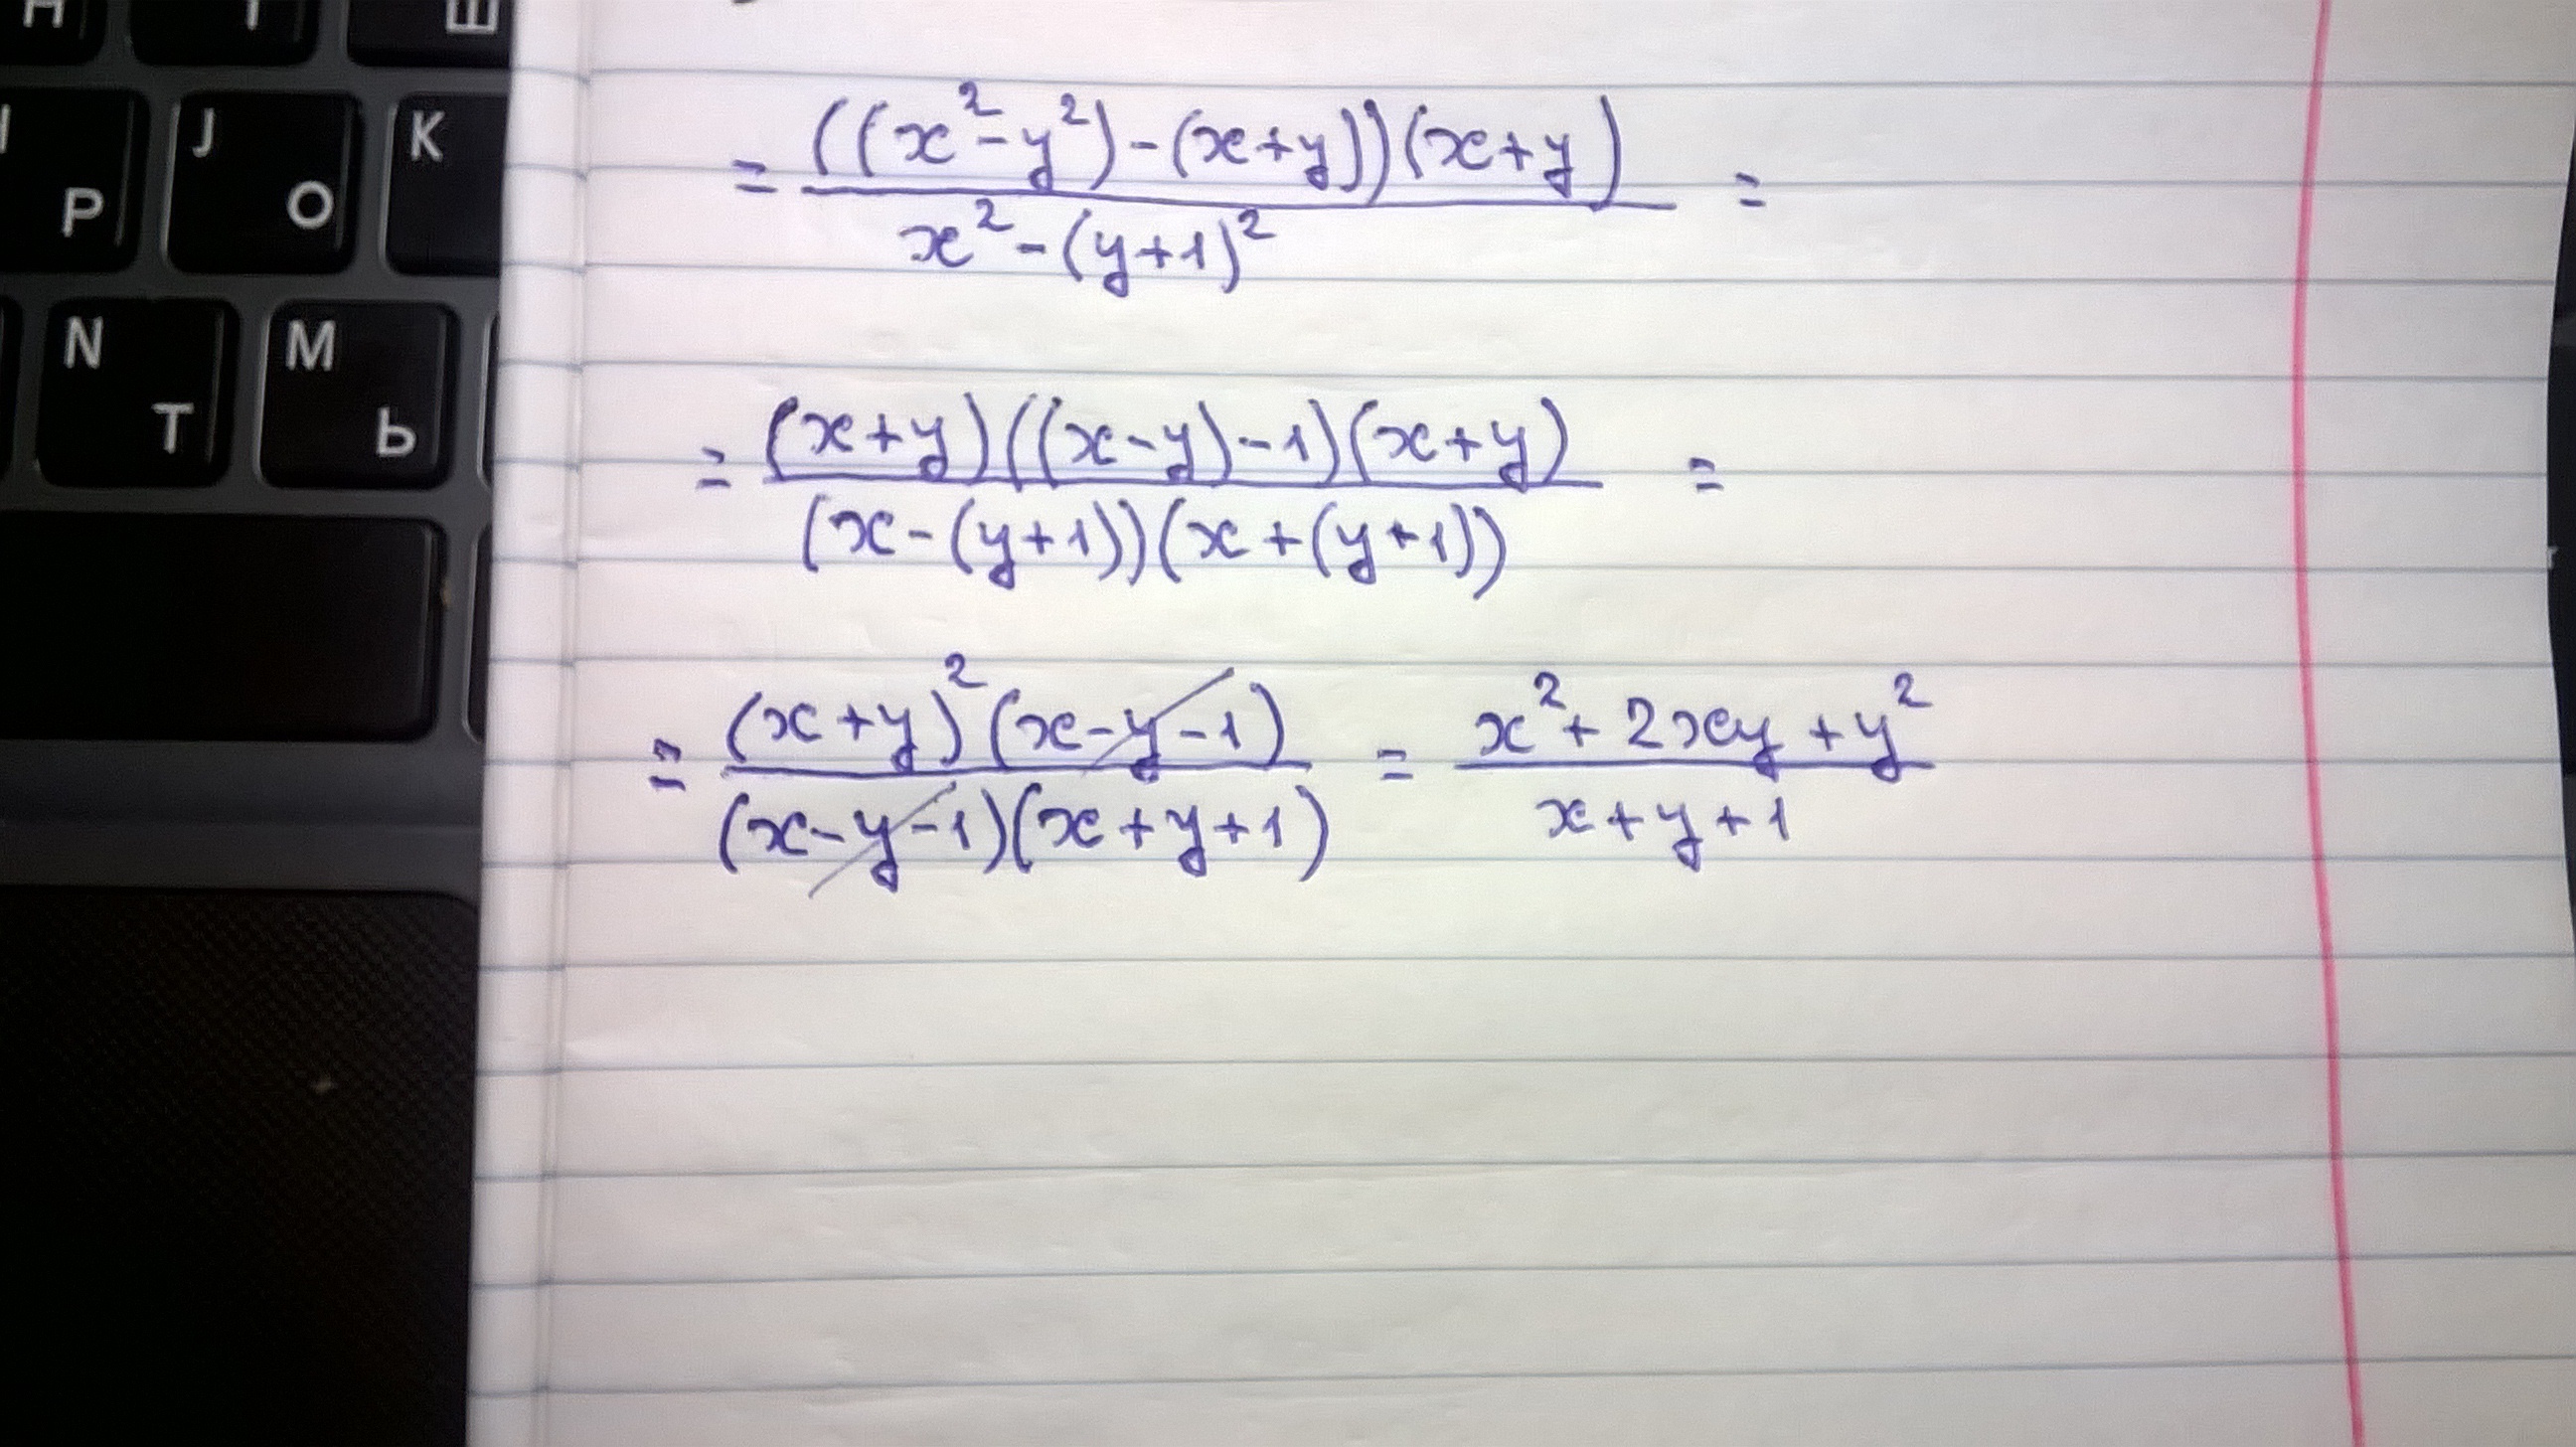 Н Г Ш
Р J О K
N Т M Ь
= ((x²-y²)-(x+y))(x+y) / x²-(y+1)² =
= (x+y)((x-y)-1)(x+y) / (x-(y+1))(x+(y+1)) =
= (x+y)²(x-y-1) / (x-y-1)(x+y+1) = x²+2xy+y² / x+y+1